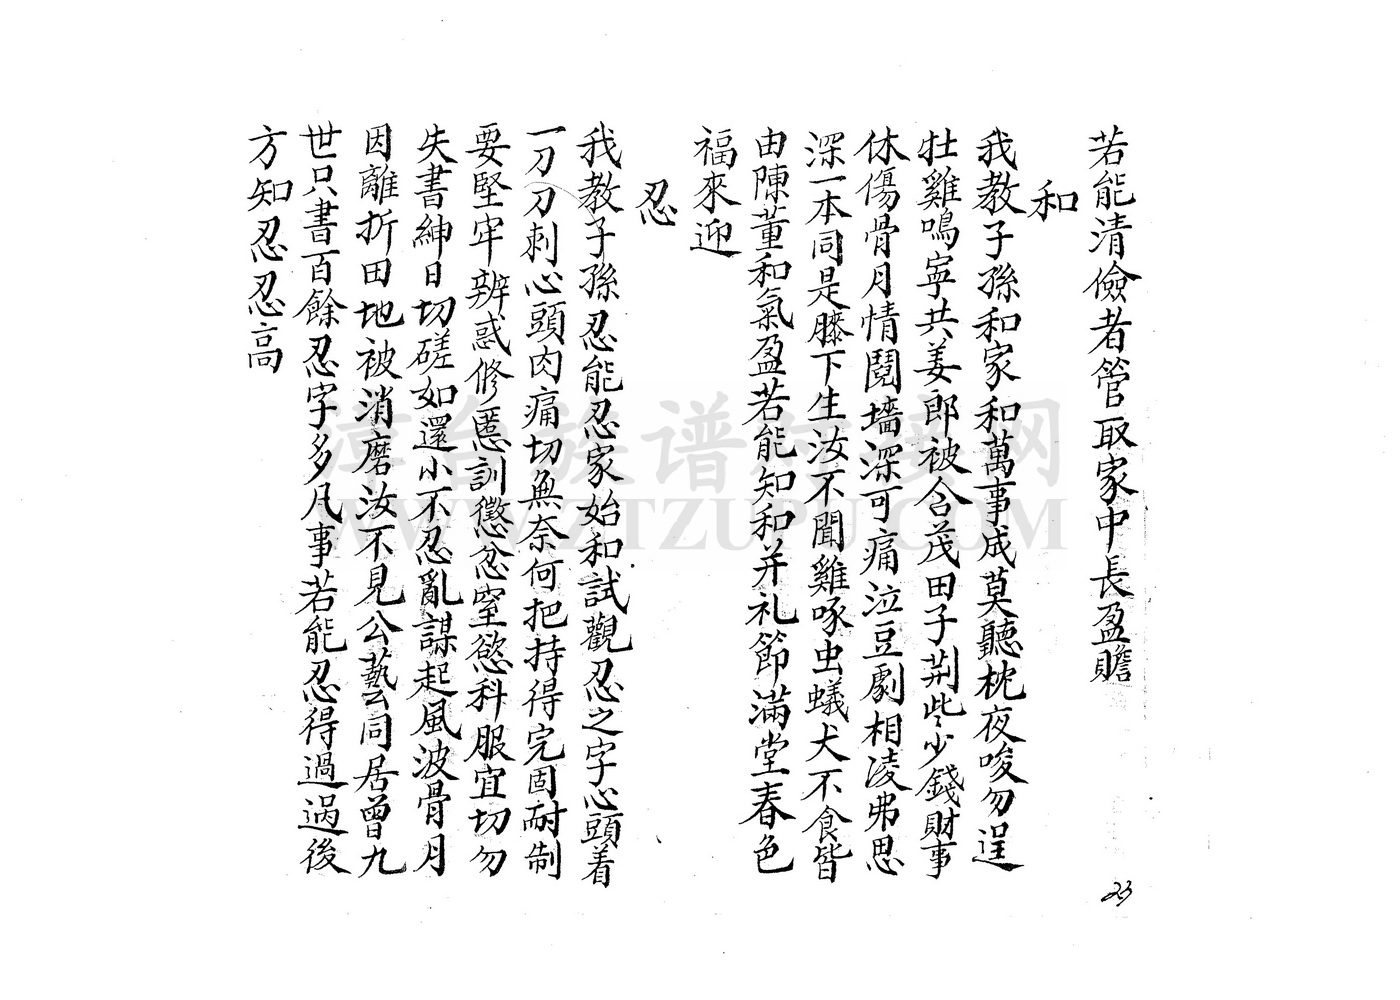 若能清儉者管取家中長盈贍
和
我教子孫和家和萬事成莫聽枕夜唆勿逞
牡雞鳴寧共姜郎被合茂田子荆些少錢財事
休傷骨月情鬩墻深可痛泣豆劇相凌弗思
深一本同是膝下生汝不聞雞啄虫蟻犬不食皆
由陳董和氣盈若能知和并礼節滿堂春色
福來迎
忍
我教子孫忍能忍家始和試觀忍之字心頭着
一刀刀刺心頭肉痛切無奈何把持得完固耐制
要堅牢辨惑修慝訓懲忿窒慾科服宜切勿
失書紳日切磋如還小不忍亂謀起風波骨月
因離折田地被消磨汝不見公藝同居曾九
世只書百餘忍字多凡事若能忍得過過後
方知忍忍高
23
漳台族谱对接网
WWW.ZTZUPU.COM